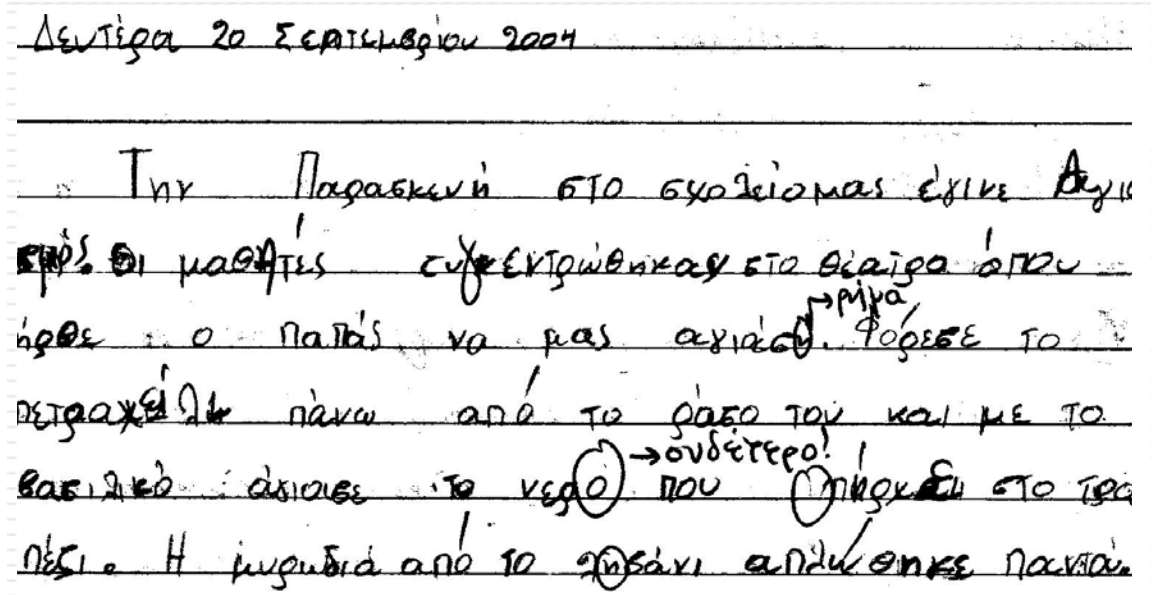 Δευτέρα 20 Σεπτεμβρίου 2004
Την Παρασκευή στο σχολείομας έγινε Αγια
σμός. Οι μαθητές συγκεντρώθηκαν στο θέατρο όπου
→ρήμα
ήρθε ο παπάς να μας αγιάση. Φόρεσε το
πετραχείλι πάνω από το ράσο του και με το
→ουδέτερο!
βασιλικό άγιασε το νερό που στο τρα
πέζι. Η μυρωδιά από το ληβάνι απλώθηκε παντού.